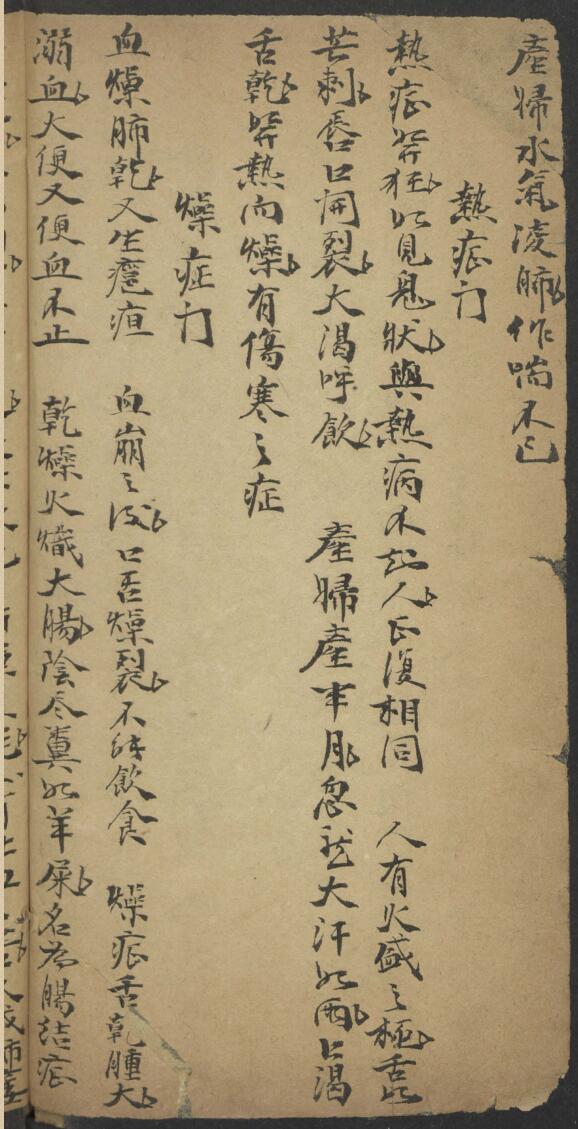 產婦水氣凌肺作喘不已
熱症门
熱症發狂如見鬼狀與熱病不起人正復相同 人有火盛之極舌如
芒刺唇口開裂大渴呼飲 產婦產半月忽然大汗如雨口渴
舌乾發熱而燥有傷寒之症
燥症门
血燥肺乾又生癰疽 血崩之後口舌燥裂不能飲食 燥症舌乾腫大
溺血大便又便血不止 乾燥火熾大腸陰尽糞如羊屎名为腸結症